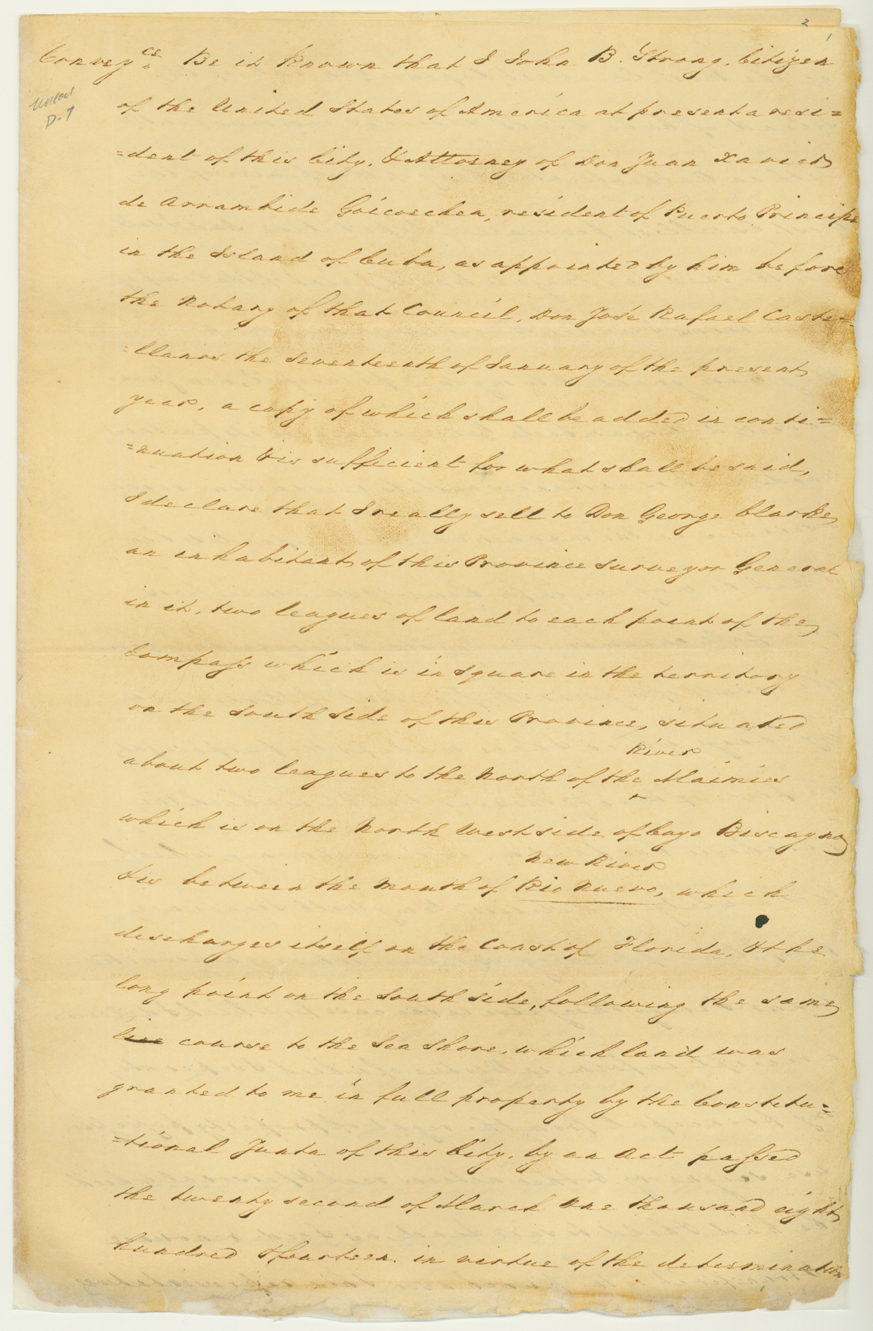 2
1
Convey.ce Be it known that I John B. Strong, Citizen
of the United States of America at present a resi=
=dent of this City, & Attorney of Don Juan Xavier
de Arrambide Goicoechea, resident of Puerto Principe
in the Island of Cuba, as appointed by him before
the Notary of that Council, Don José Rafael Caste=
=llanos the seventeenth of January of the present
year, a copy of which shall be added in conti=
=nuation & is sufficient for what shall be said,
I declare that I really sell to Don George Clarke,
an inhabitant of this Province Surveyor General
in it, two leagues of land to each point of the
Compass which is in square in the territory
on the South Side of this Province, situated
River
about two leagues to the North of the Maimies
which is on the North West side of Cayo Biscayno
New River
& is between the mouth of Rio Nuevo, which
discharges itself on the Coast of Florida, & the
long point on the South side, following the same
line course to the Sea Shore, which land was
granted to me in full property by the Constitu=
=tional Junta of this City, by an Act passed
the twenty second of March One thousand eight
hundred & fourteen, in virtue of the determination
D. 9